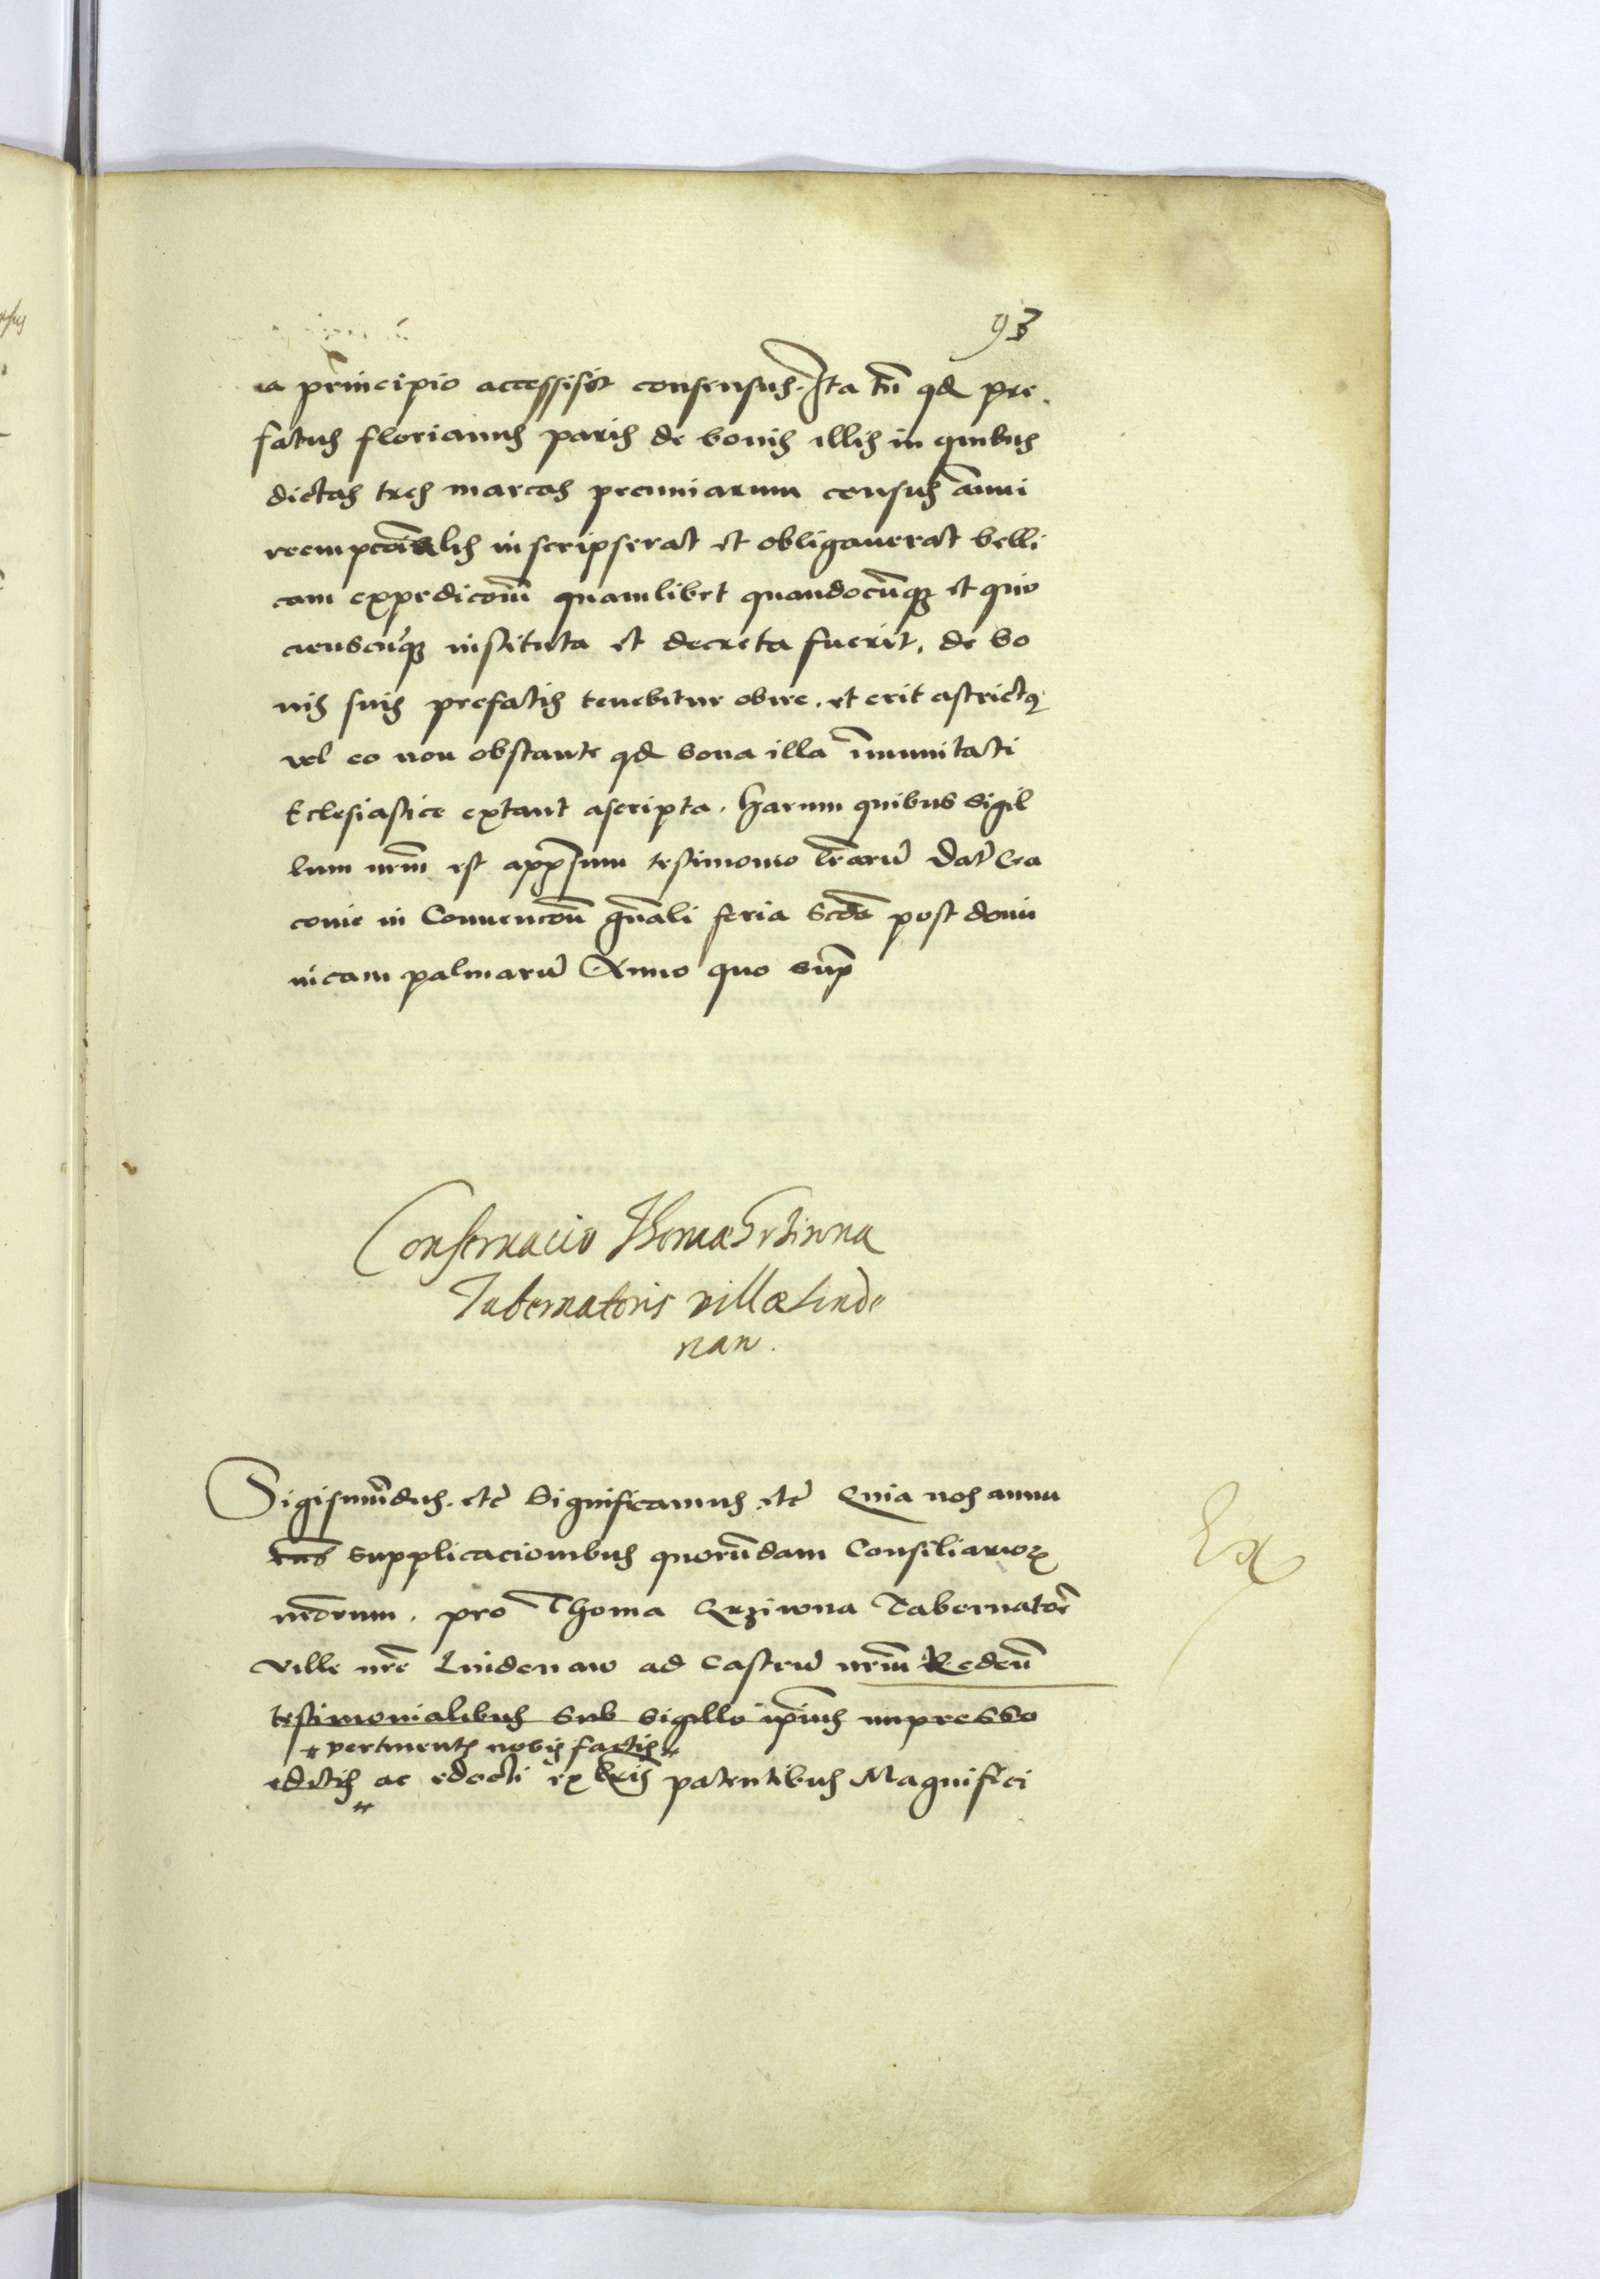 93
a principio accessisset consensus. Ita tn̄ qd pre
fatus florianus paris de bonis illis in quibus
dictas tres marcas pecuniarum census ānui
reempcōnalis inscripserat et obligauerat belli
cam expedicōm̄ quamlibet quandocūq; et quo
cienscūq; instituta et decreta fuerit, de bo
nis suis prefatis tenebitur obire. et erit astrictus
vel eo non obstante qd bona illa īmunitati
Eclesiastice extant ascripta. Harum quibus sigil
lum nrm̄ est appsum testimonio lr̄arū Dat̄ Cra
covie in Conuencōn gn̄ali feria Scd̄a post domi
nicam palmarū Anno quo sup̄
Consernacio Thomæ Srzinna
Tabernatoris villæ Linde
nan.
Sigismūdus. etc̄ Significamus. etc̄ Quia nos annu
tus supplicacionibus quorūdam Consiliarior
nr̄orum. pro Thoma Srziwna Tabernator̄
ville nr̄e Lindenaw ad Castrū nrm̄
Ex
testimonialibus sub sigillo ip̄ius impresso
pertinent̄ nobis factis
editis ac edocti ex lr̄is patentibus Magnifici